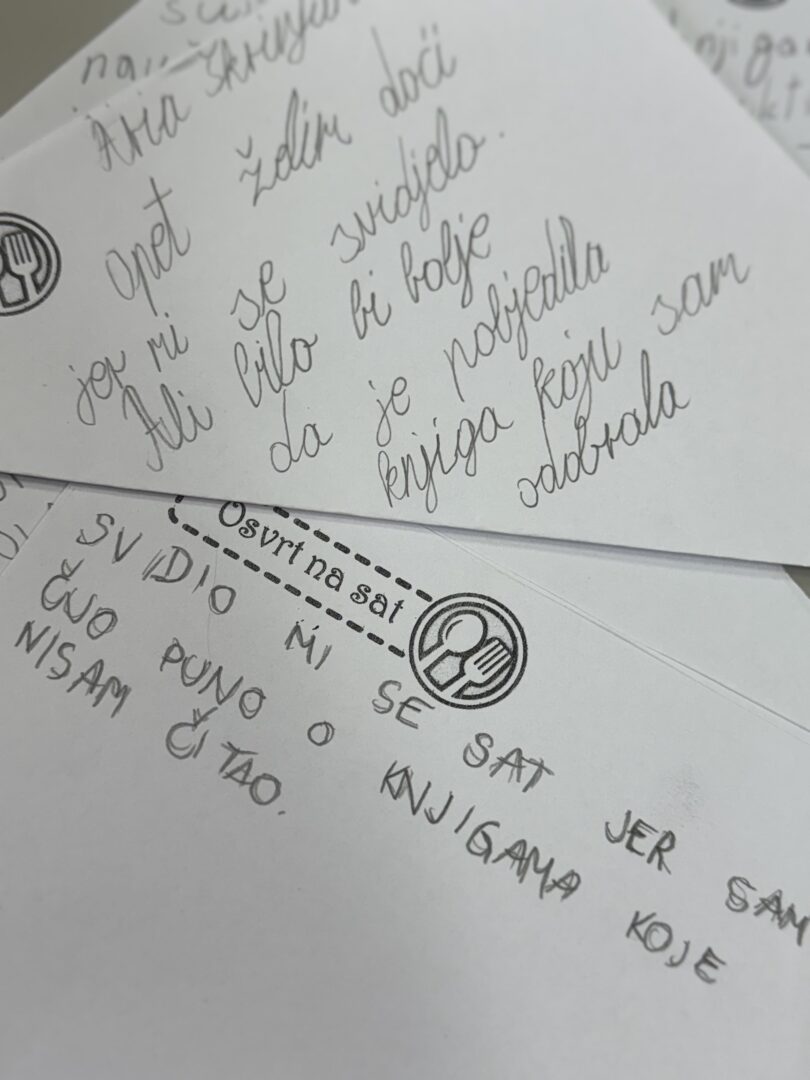 Aria
opet ždim doći
jer mi se svidjelo.
Ali bilo bi bolje
da je pobjedila
knjiga koju sam
odabrala
Osvrt na sat
SVIDIO MI SE SAT JER SAM
ČUO PUNO O KNJIGAMA KOJE
NISAM ČITAO.